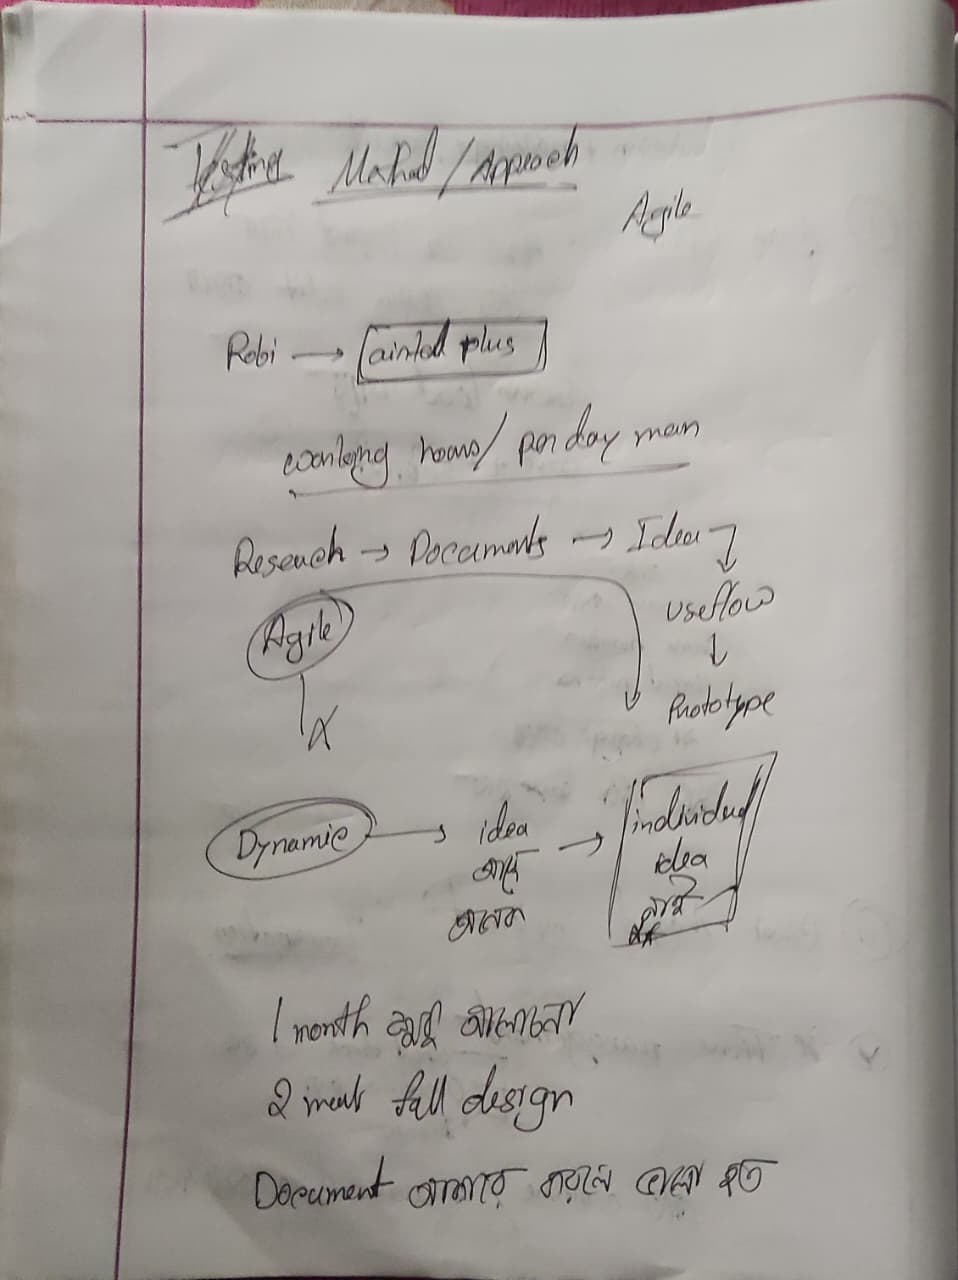 Testing Mathod / Approach
Agile
Robi → airtel plus
working hours / per day man
Reseach → Documents → Idea
Useflow
Agile
Prototype
Dynamic → idea → individual
আছে idea
অনেক নাই
1 month শুধু আলোচনা
2 full design
Document আকারে করলে ভালো হত